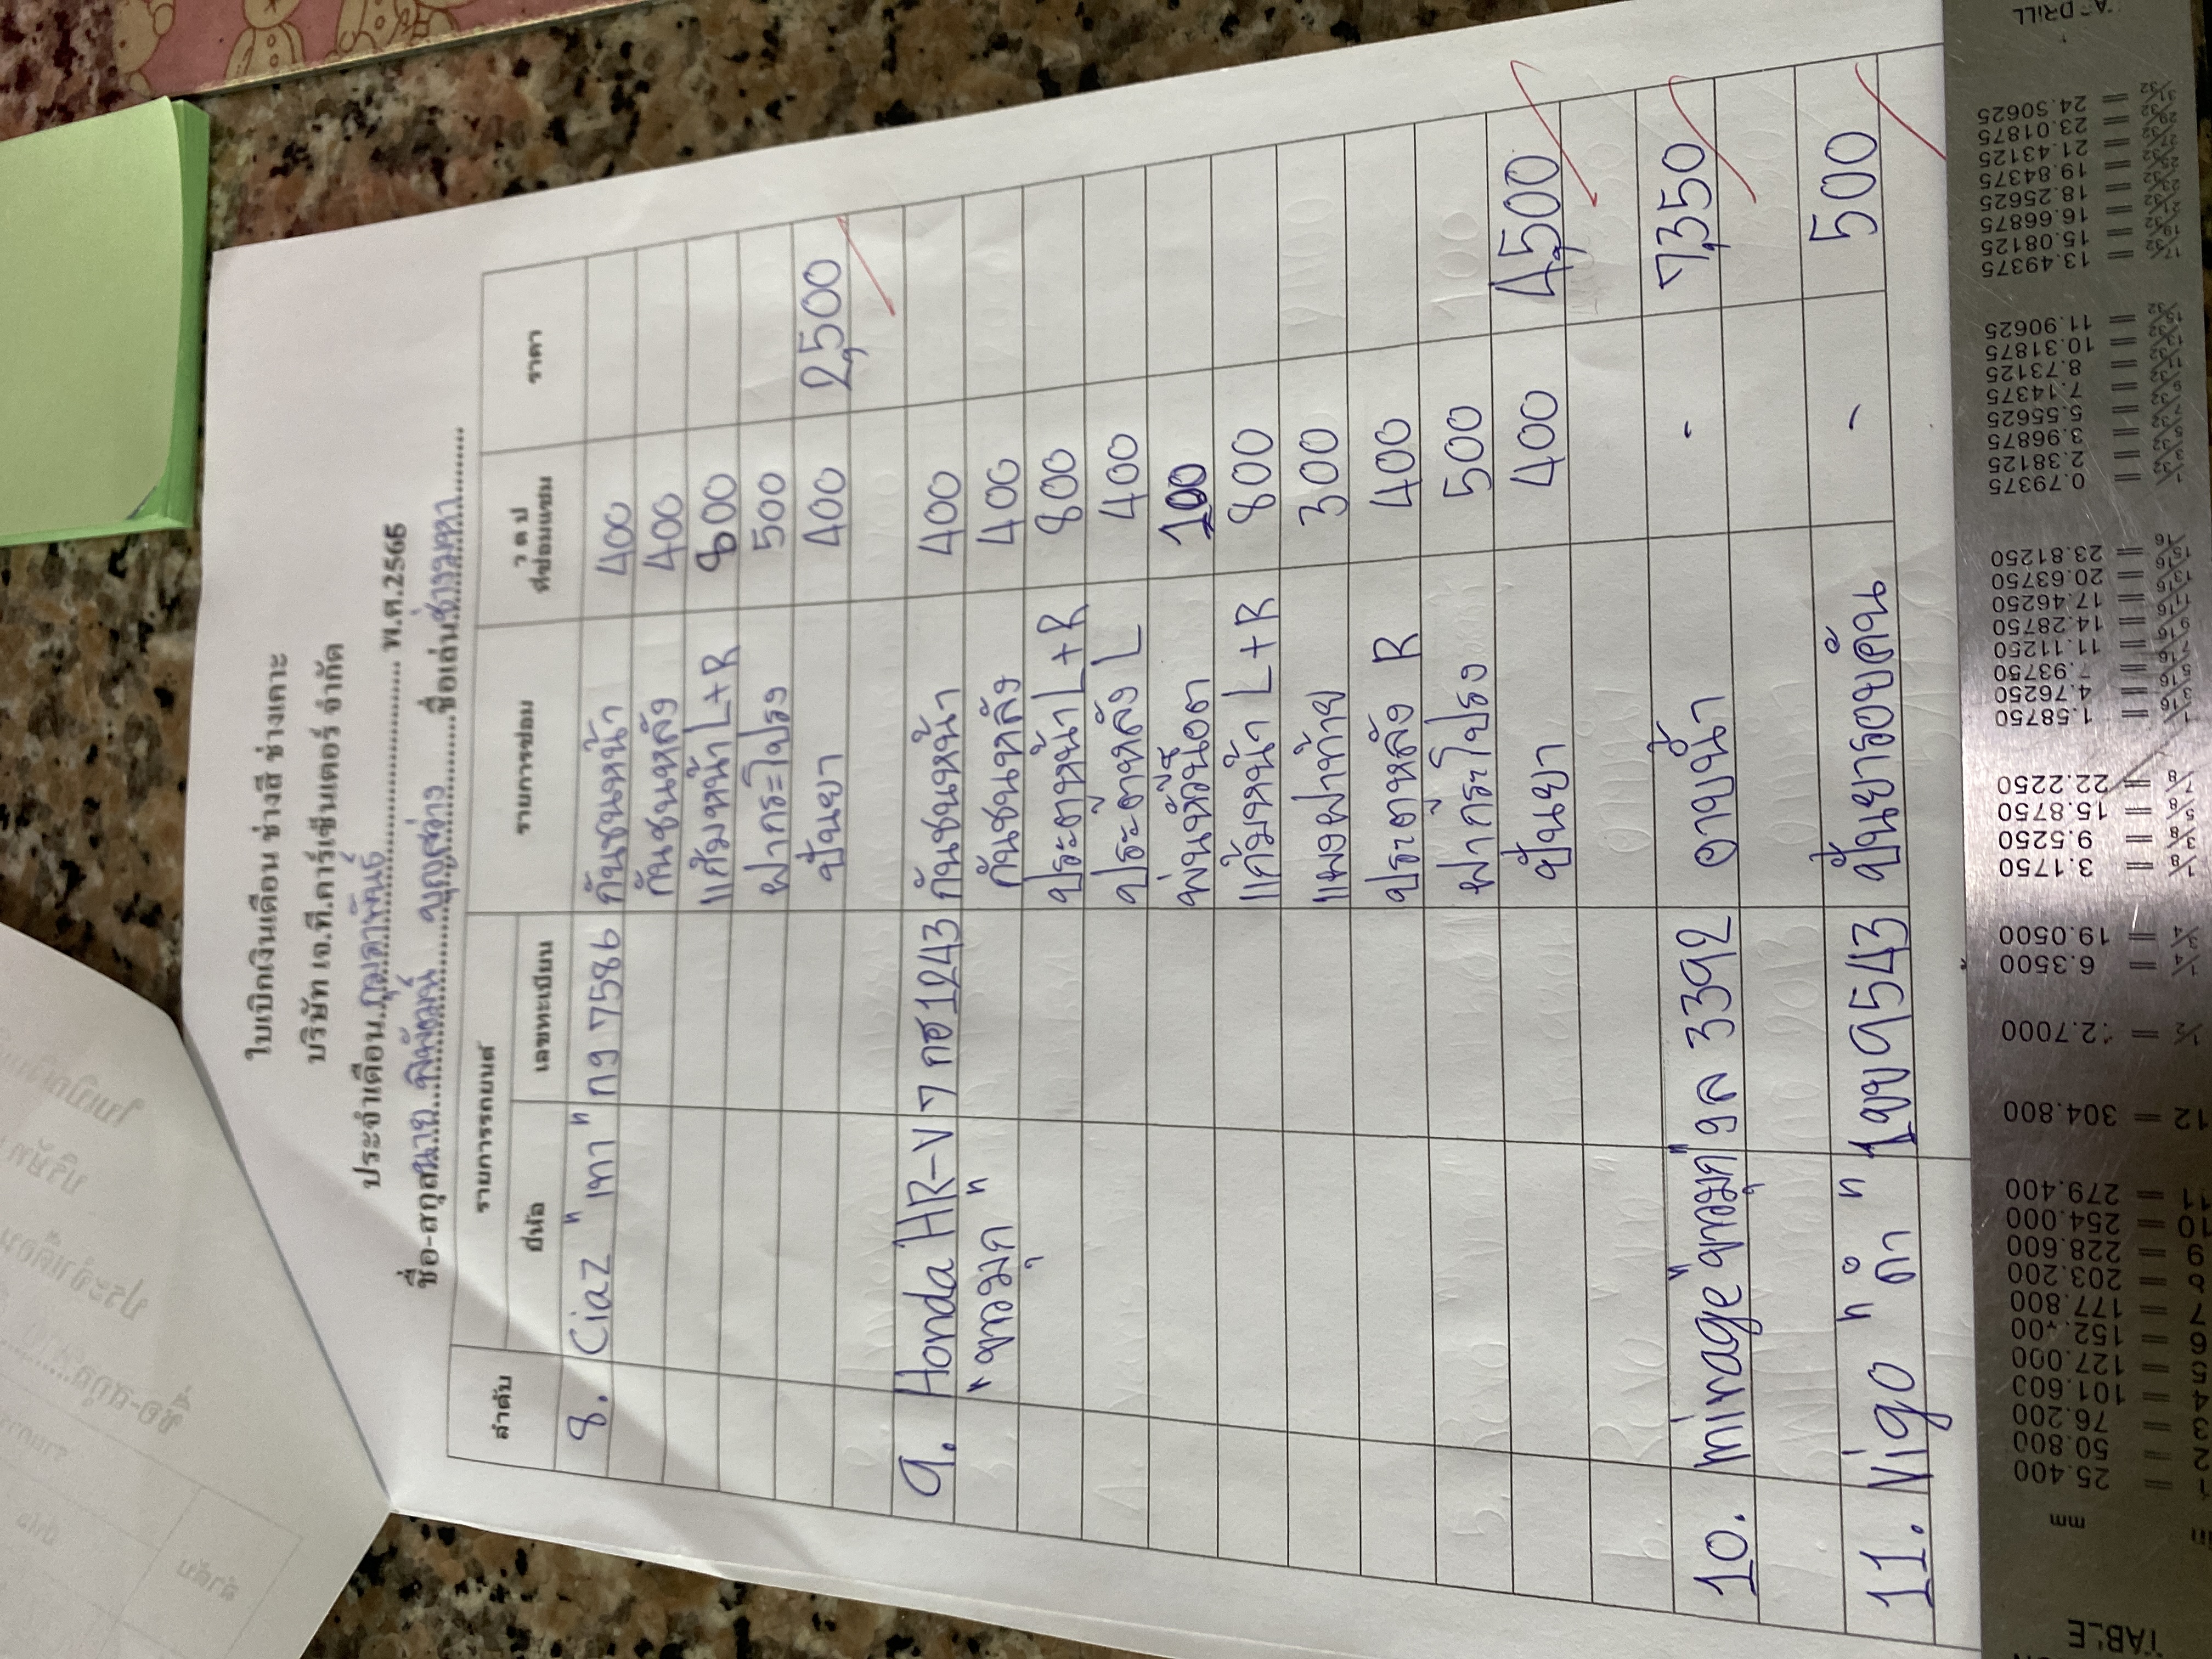 ใบเบิกเงินเดือน ช่างสี ช่างเคาะ
บริษัท เจ.ที.คาร์เซ็นเตอร์ จำกัด
ประจำเดือน กุมภาพันธ์ พ.ศ.2565
ชื่อ-สกุล นาย พิพัฒน์ บุญสว่าง ชื่อเล่น ช่างมหา
ลำดับ รายการรถยนต์ รายการซ่อม ว ด ป ที่ซ่อมแซม ราคา
ยี่ห้อ เลขทะเบียน
8. Ciaz "เทา" กง 7586 กันชนหน้า 400
กันชนหลัง 400
แก้มหน้า L+R 800
ฝากระโปรง 500
ปั่นยา 400 2,500
9. Honda HR-V 7 กฮ 1243 กันชนหน้า 400
"ขาวมุก" กันชนหลัง 400
ประตูหน้า L+R 800
ประตูหลัง L 400
พ่นหัวน็อต 100
แก้มหน้า L+R 800
แมงฝาท้าย 300
ประตูหลัง R 400
ฝากระโปรง 500
ปั่นยา 400 4,500
10. mirage "ขาวมุก" งล 3392 อาบน้ำ - 7,350
11. Vigo "ดำ" 1ขข 9543 ปั่นยารอบคัน - 500
A-DRILL
TABLE
mm
1 = 25.400
2 = 50.800
3 = 76.200
4 = 101.600
5 = 127.000
6 = 152.400
7 = 177.800
8 = 203.200
9 = 228.600
10 = 254.000
11 = 279.400
12 = 304.800
1/2 = 12.7000
1/4 = 6.3500
3/4 = 19.0500
1/8 = 3.1750
3/8 = 9.5250
5/8 = 15.8750
7/8 = 22.2250
1/16 = 1.58750
3/16 = 4.76250
5/16 = 7.93750
7/16 = 11.11250
9/16 = 14.28750
11/16 = 17.46250
13/16 = 20.63750
15/16 = 23.81250
0.79375
2.38125
3.96875
5.55625
7.14375
8.73125
10.31875
11.90625
13.49375
15.08125
16.66875
18.25625
19.84375
21.43125
23.01875
24.50625